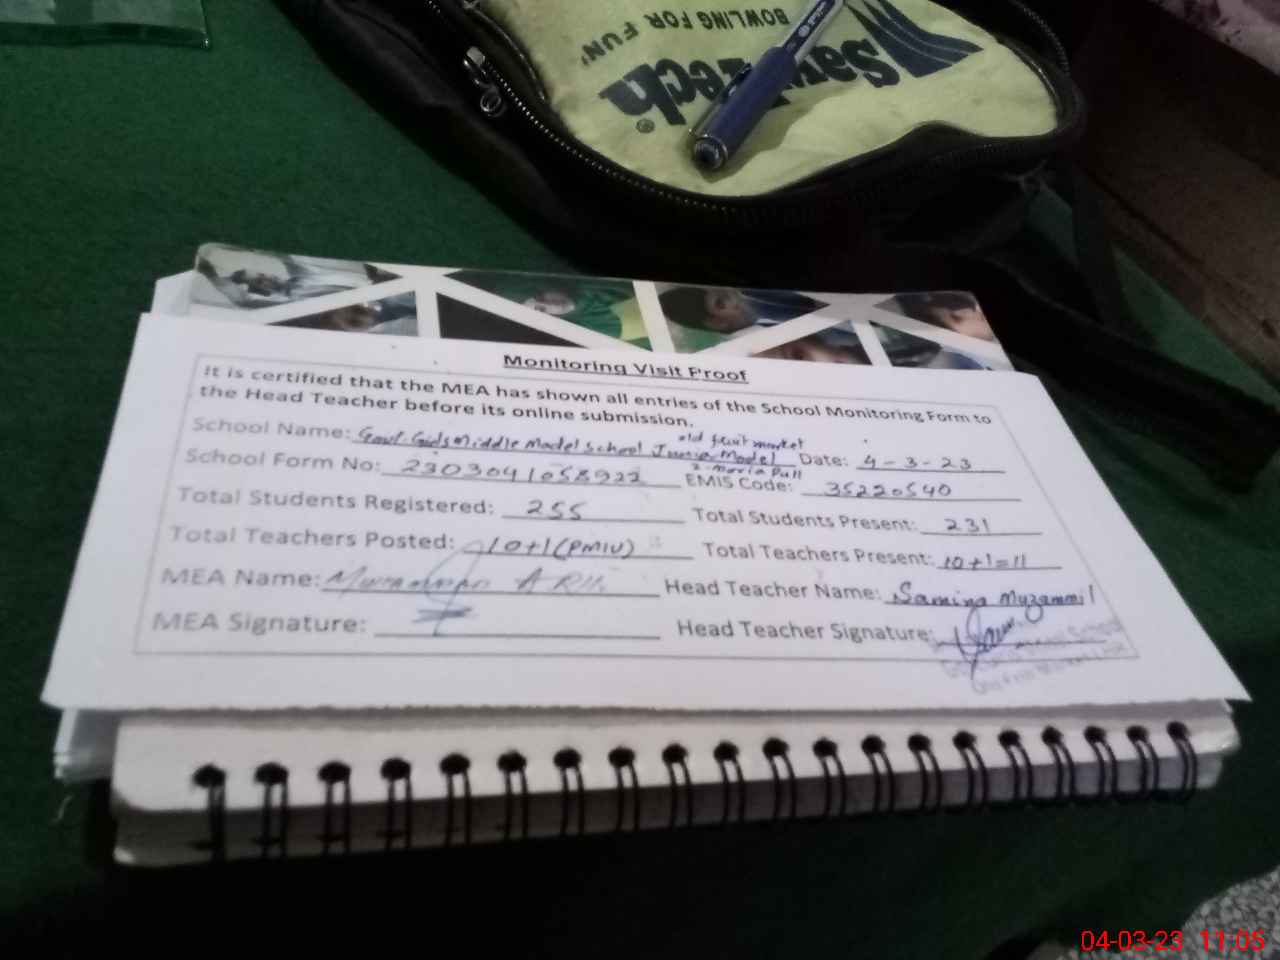 BOWLING FOR FUN
SawTech®
Monitoring Visit Proof
It is certified that the MEA has shown all entries of the School Monitoring Form to
the Head Teacher before its online submission.
old fruit market
School Name: Govt. Girls Middle Model School Junior Model Date: 4-3-23
2-moria Pull
School Form No: 2303041058922 EMIS Code: 35220540
Total Students Registered: 255 Total Students Present: 231
Total Teachers Posted: 10+1(PMIU) Total Teachers Present: 10+1=11
MEA Name: Muhammad Head Teacher Name: Samina Muzammil
MEA Signature: Head Teacher Signature:
04-03-23 11:05